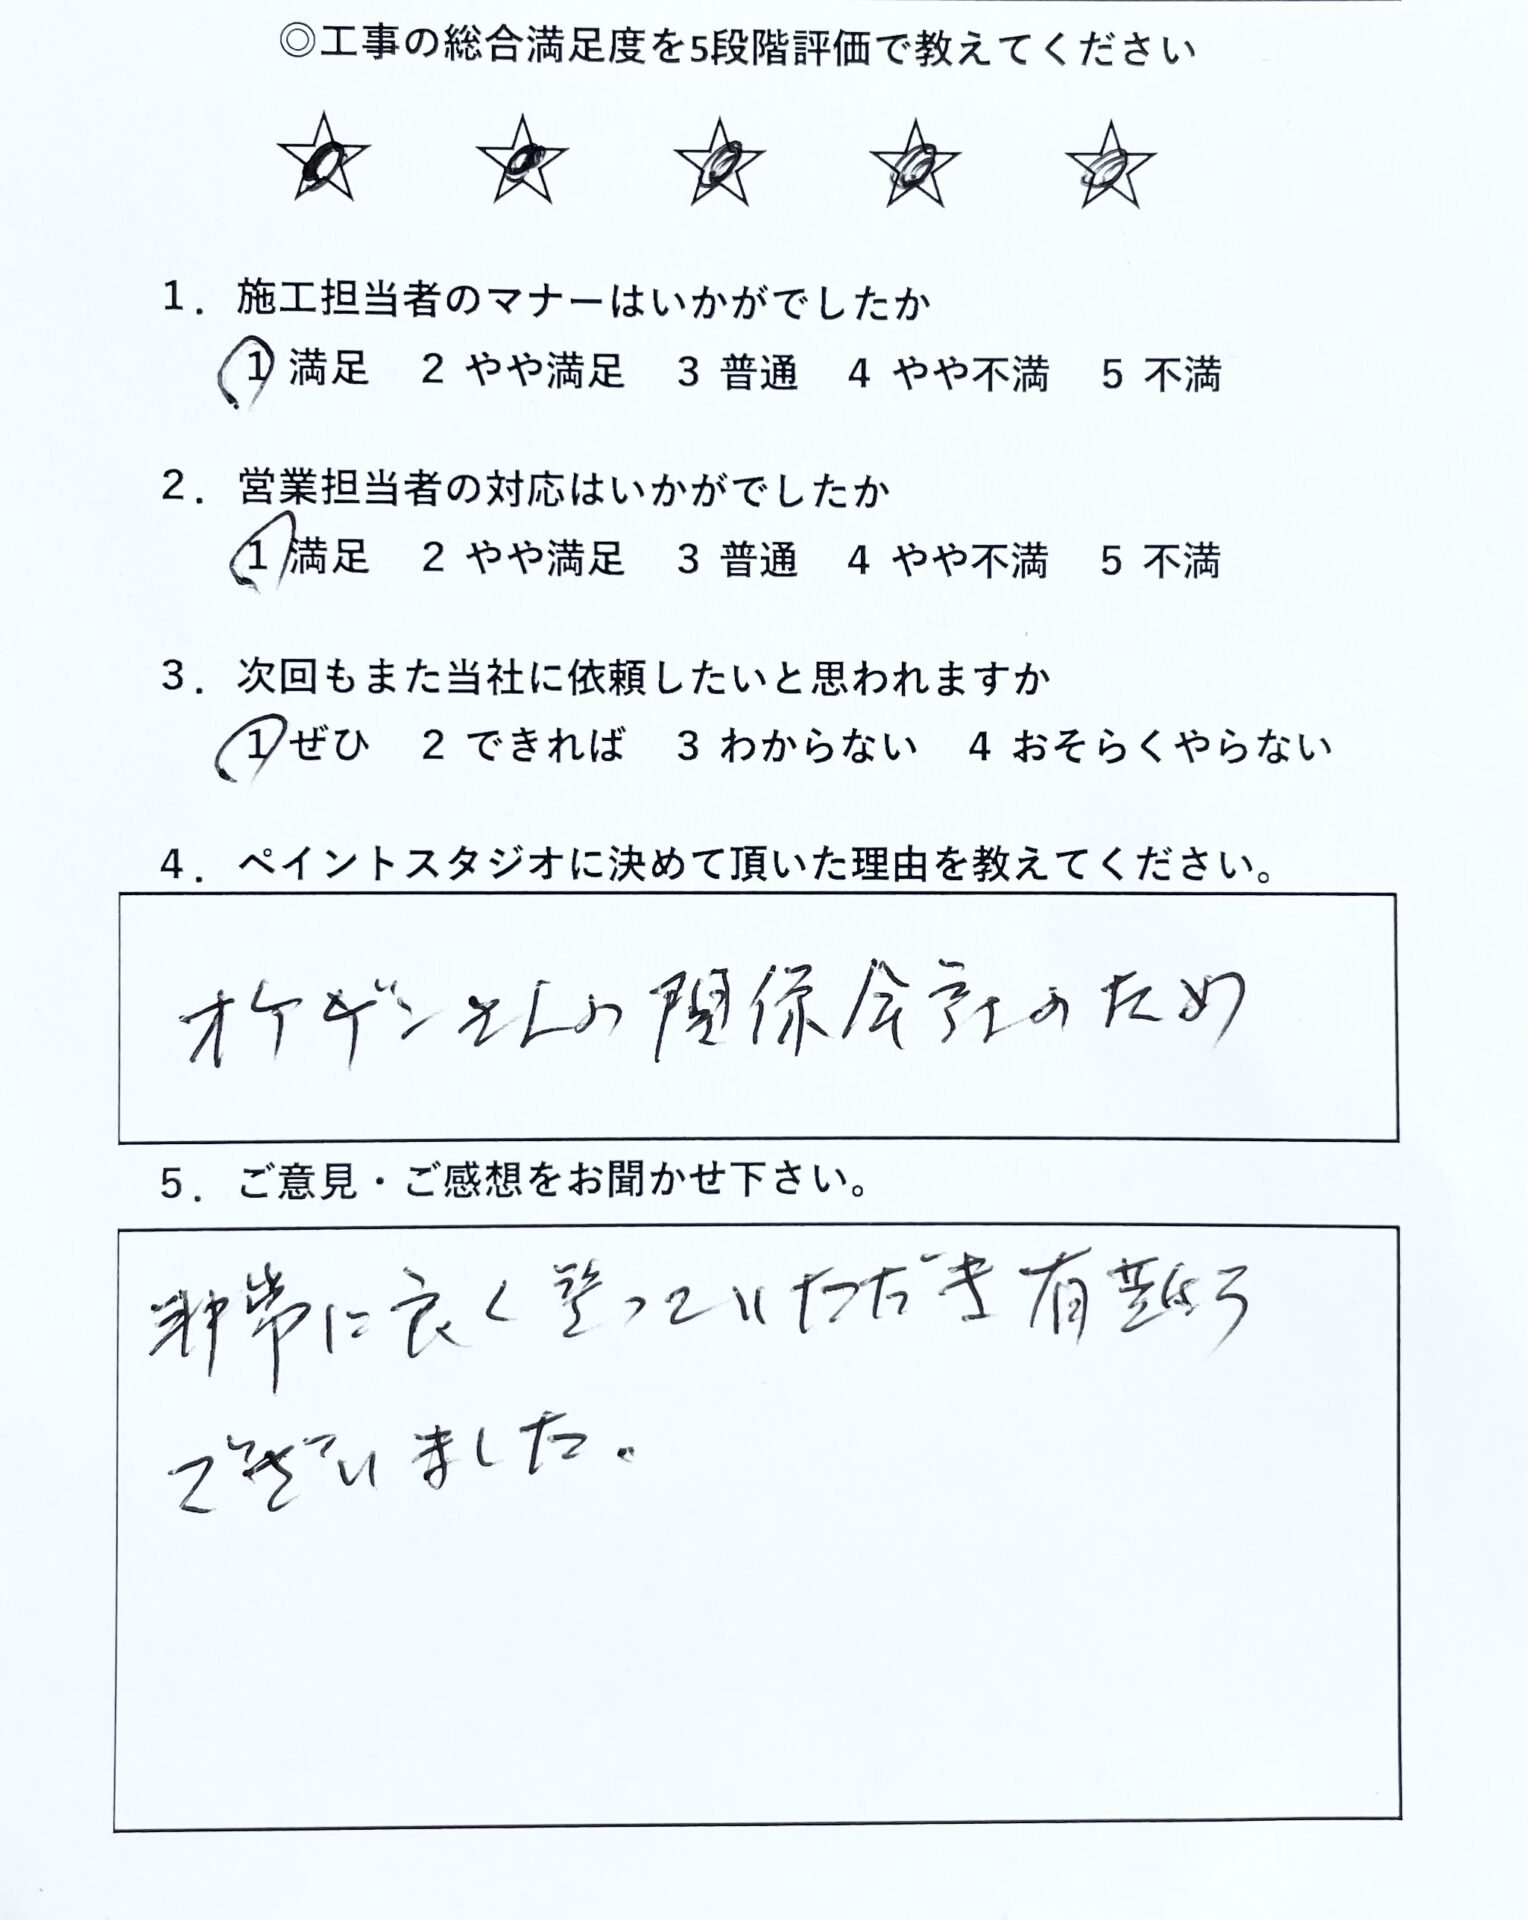 ◎工事の総合満足度を5段階評価で教えてください
1．施工担当者のマナーはいかがでしたか
1 満足 2 やや満足 3 普通 4 やや不満 5 不満
2．営業担当者の対応はいかがでしたか
1 満足 2 やや満足 3 普通 4 やや不満 5 不満
3．次回もまた当社に依頼したいと思われますか
1 ぜひ 2 できれば 3 わからない 4 おそらくやらない
4．ペイントスタジオに決めて頂いた理由を教えてください。
オケゲンさんの関係会社のため
5．ご意見・ご感想をお聞かせ下さい。
非常に良く塗っていただき有難う
ございました。